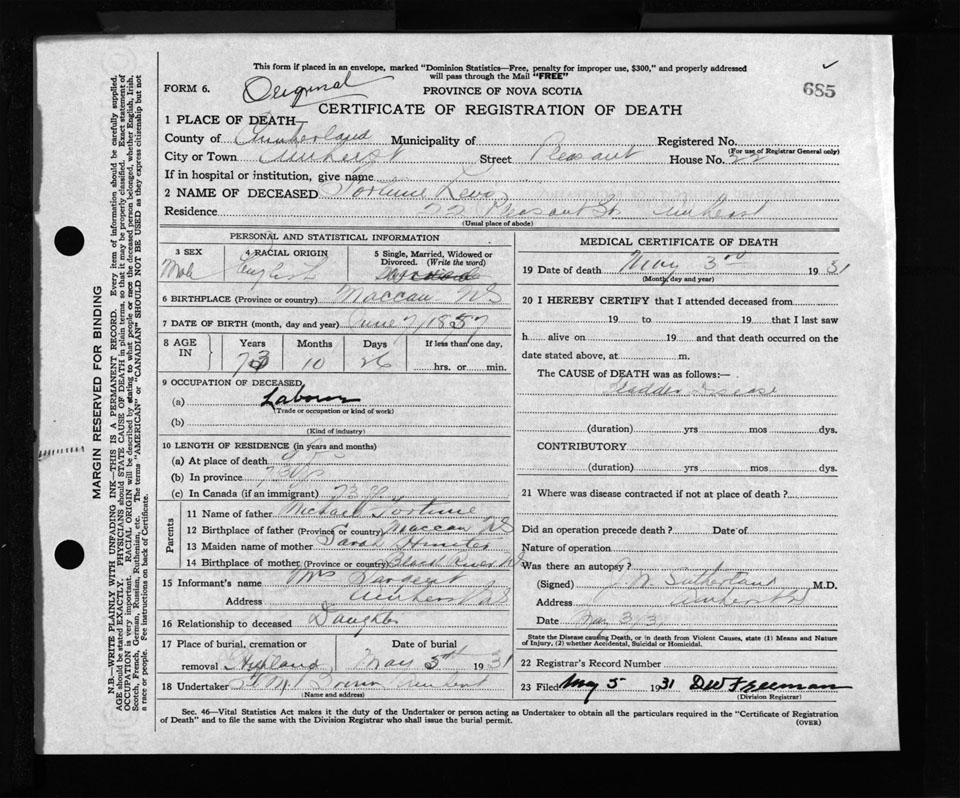 This form if placed in an envelope, marked "Dominion Statistics—Free, penalty for improper use, $300," and properly addressed
will pass through the Mail "FREE"
FORM 6. Original PROVINCE OF NOVA SCOTIA 685
CERTIFICATE OF REGISTRATION OF DEATH
1 PLACE OF DEATH—
County of Cumberland Municipality of Registered No.
(For use of Registrar General only)
City or Town Amherst Street Pleasant House No. 22
If in hospital or institution, give name
2 NAME OF DECEASED Fortune
Residence 22 Pleasant St. Amherst
(Usual place of abode)
PERSONAL AND STATISTICAL INFORMATION
3 SEX Male
4 RACIAL ORIGIN English
5 Single, Married, Widowed or Divorced. (Write the word)
6 BIRTHPLACE (Province or country) Maccan NS
7 DATE OF BIRTH (month, day and year) June 7/1857
8 AGE IN Years 73 Months 10 Days 26 If less than one day, hrs. or min.
9 OCCUPATION OF DECEASED
(a) Laborer
(Trade or occupation or kind of work)
(b)
(Kind of industry)
10 LENGTH OF RESIDENCE (in years and months)
(a) At place of death
(b) In province 73 yrs
(c) In Canada (if an immigrant) 73 yrs
Parents
11 Name of father Michael Fortune
12 Birthplace of father (Province or country) Maccan NS
13 Maiden name of mother Sarah Hunter
14 Birthplace of mother (Province or country) Black River NS
15 Informant's name Mrs Sargent
Address Amherst NS
16 Relationship to deceased Daughter
17 Place of burial, cremation or removal Highland Date of burial May 5th 1931
18 Undertaker Amherst
(Name and address)
MEDICAL CERTIFICATE OF DEATH
19 Date of death May 3rd 1931
(Month, day and year)
20 I HEREBY CERTIFY that I attended deceased from
19 to 19 that I last saw
h alive on 19 and that death occurred on the
date stated above, at m.
The CAUSE of DEATH was as follows:—
Bladder Disease
(duration) yrs mos dys.
CONTRIBUTORY
(duration) yrs mos dys.
21 Where was disease contracted if not at place of death?
Did an operation precede death? Date of
Nature of operation
Was there an autopsy?
(Signed) J. W. Sutherland M.D.
Address Amherst NS
Date May 3/31
State the Disease causing Death, or in death from Violent Causes, state (1) Means and Nature
of Injury, (2) whether Accidental, Suicidal or Homicidal.
22 Registrar's Record Number
23 Filed May 5 1931 D W Freeman
(Division Registrar)
Sec. 46—Vital Statistics Act makes it the duty of the Undertaker or person acting as Undertaker to obtain all the particulars required in the "Certificate of Registration
of Death" and to file the same with the Division Registrar who shall issue the burial permit. (OVER)
MARGIN RESERVED FOR BINDING
N.B.—WRITE PLAINLY WITH UNFADING INK—THIS IS A PERMANENT RECORD. Every item of information should be carefully supplied.
AGE should be stated EXACTLY. PHYSICIANS should STATE CAUSE OF DEATH in plain terms, so that it may be properly classified. Exact statement of
OCCUPATION is very important. RACIAL ORIGIN will be described by stating to what people or race the deceased person belonged, whether English, Irish,
Scotch, French, German, Russian, Ruthenian, etc. The terms "AMERICAN" or "CANADIAN" SHOULD NOT BE USED as they express citizenship but not
a race or people. See instructions on back of Certificate.